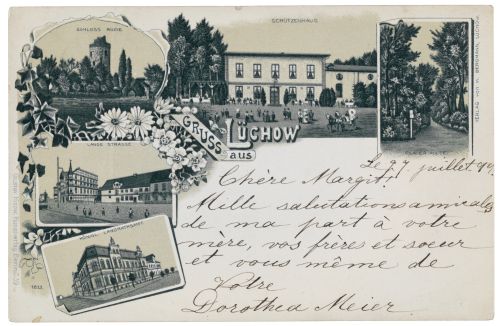 SCHLOSS RUINE
SCHÜTZENHAUS
GRUSS
aus
LÜCHOW
LANGE STRASSE
KÖNIGL. LANDRATHSAMT
1812
VERLAG VON W. BERGMANN, LÜCHOW.
Le 27 juillet
Chère Margit!
Mille salutations amicales
de ma part à votre
mère, vos frères et soeur
et vous même de
Votre
Dorothea Meier.